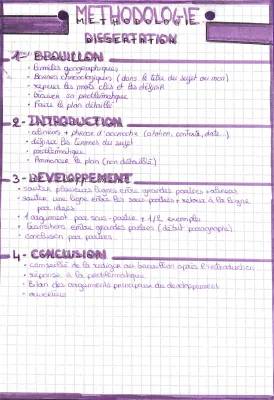 METHODOLOGIE
DISSERTATION
1- BROUILLON
· limites géographiques
· Bornes chronologiques (dans le titre du sujet ou non)
· repérer les mots clés et les définir
· trouver sa problématique
· Faire le plan détaillé
2- INTRODUCTION
· alinéas + phrase d'accroche (citation, contexte, date...)
· définir les termes du sujet
· problématique
· Annoncer le plan (non détaillé)
3- DEVELOPPEMENT
· sauter plusieurs lignes entre grandes parties + alinéas
· sauter une ligne entre les sous parties + retour à la ligne
par idées
· 1 argument par sous-partie + 1/2 exemples
· transitions entre grandes parties (début paragraphe)
· conclusion par parties
4- CONCLUSION
· conseillé de la rédiger au brouillon après l'introduction
· réponse à la problématique
· Bilan des arguments principaux du développement
· ouverture